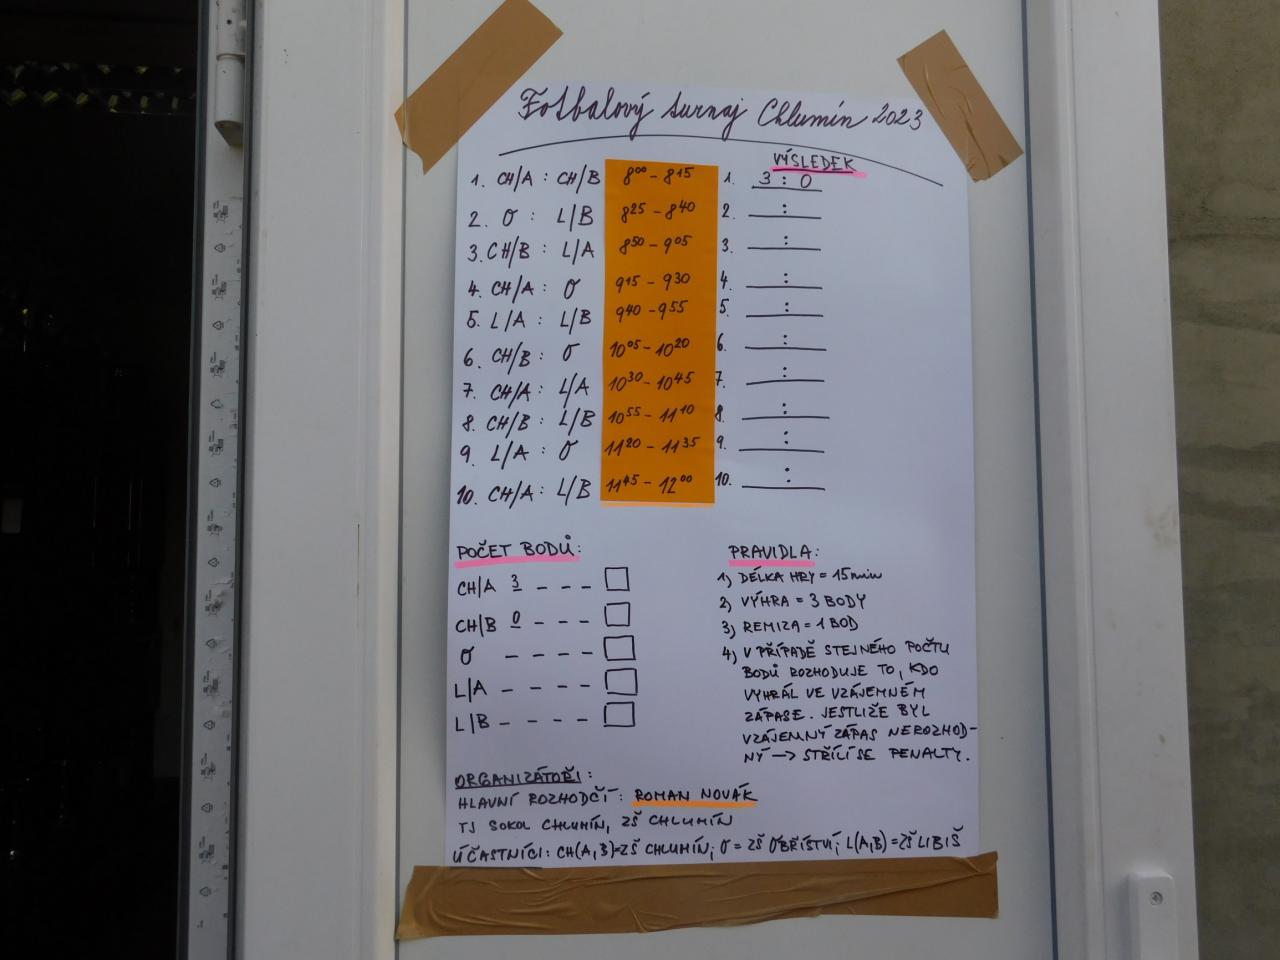 Fotbalový turnaj Chlumín 2023
VÝSLEDEK
1. CH/A : CH/B 8⁰⁰ – 8¹⁵ 1. 3 : 0
2. O : L/B 8²⁵ – 8⁴⁰ 2. :
3. CH/B : L/A 8⁵⁰ – 9⁰⁵ 3. :
4. CH/A : O 9¹⁵ – 9³⁰ 4. :
5. L/A : L/B 9⁴⁰ – 9⁵⁵ 5. :
6. CH/B : O 10⁰⁵ – 10²⁰ 6. :
7. CH/A : L/A 10³⁰ – 10⁴⁵ 7. :
8. CH/B : L/B 10⁵⁵ – 11¹⁰ 8. :
9. L/A : O 11²⁰ – 11³⁵ 9. :
10. CH/A : L/B 11⁴⁵ – 12⁰⁰ 10. :
POČET BODŮ:
CH/A 3 – – –
CH/B 0 – – –
O – – – –
L/A – – – –
L/B – – – –
PRAVIDLA:
1) DÉLKA HRY = 15 min
2) VÝHRA = 3 BODY
3) REMIZA = 1 BOD
4) V PŘÍPADĚ STEJNÉHO POČTU
BODŮ ROZHODUJE TO, KDO
VYHRÁL VE VZÁJEMNÉM
ZÁPASE. JESTLIŽE BYL
VZÁJEMNÝ ZÁPAS NEROZHOD-
NÝ → STŘÍLÍ SE PENALTY.
ORGANIZÁTOŘI:
HLAVNÍ ROZHODČÍ: ROMAN NOVÁK
TJ SOKOL CHLUMÍN, ZŠ CHLUMÍN
ÚČASTNÍCI: CH(A,B)=ZŠ CHLUMÍN; O = ZŠ OBŘÍSTVÍ; L(A,B) = ZŠ LIBIŠ